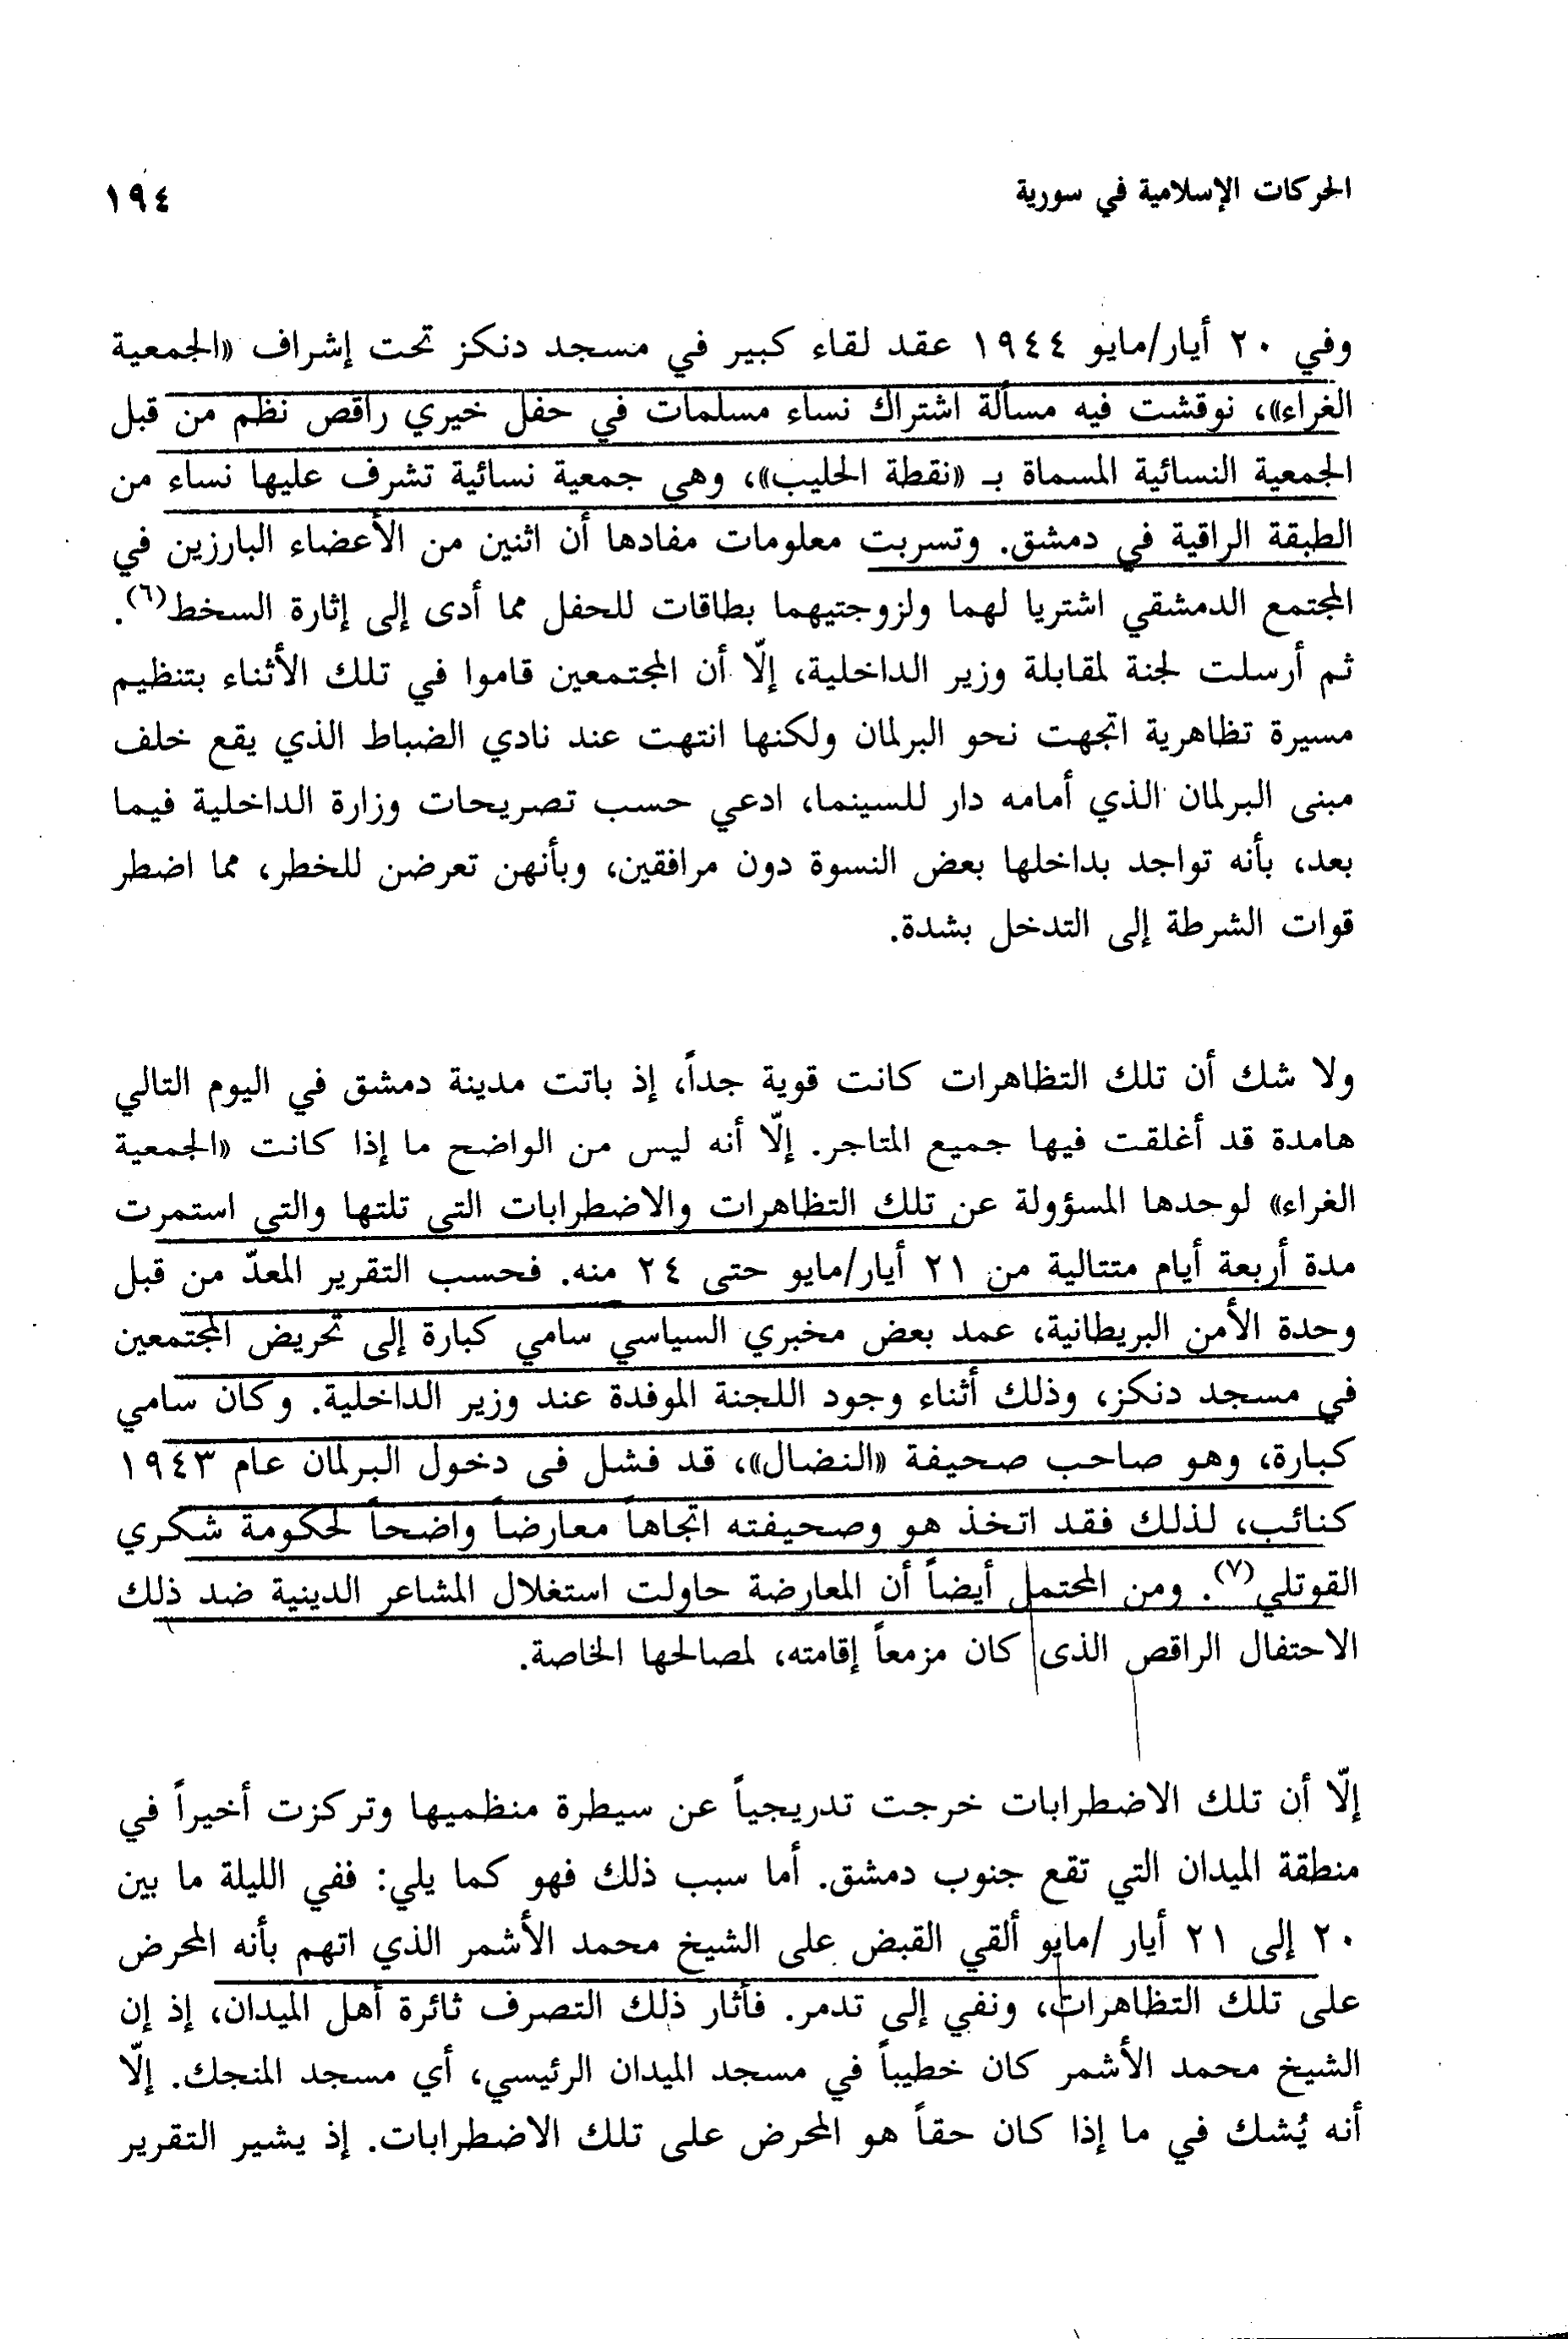 الحركات الإسلامية في سورية
١٩٤
وفي ٢٠ أيار/مايو ١٩٤٤ عقد لقاء كبير في مسجد دنكز تحت إشراف «الجمعية
الغراء»، نوقشت فيه مسألة اشتراك نساء مسلمات في حفل خيري راقص نظم من قبل
الجمعية النسائية المسماة بـ «نقطة الحليب»، وهي جمعية نسائية تشرف عليها نساء من
الطبقة الراقية في دمشق. وتسربت معلومات مفادها أن اثنين من الأعضاء البارزين في
المجتمع الدمشقي اشتريا لهما ولزوجتيهما بطاقات للحفل مما أدى إلى إثارة السخط(٦).
ثم أرسلت لجنة لمقابلة وزير الداخلية، إلّا أن المجتمعين قاموا في تلك الأثناء بتنظيم
مسيرة تظاهرية اتجهت نحو البرلمان ولكنها انتهت عند نادي الضباط الذي يقع خلف
مبنى البرلمان الذي أمامه دار للسينما، ادعي حسب تصريحات وزارة الداخلية فيما
بعد، بأنه تواجد بداخلها بعض النسوة دون مرافقين، وبأنهن تعرضن للخطر، مما اضطر
قوات الشرطة إلى التدخل بشدة.
ولا شك أن تلك التظاهرات كانت قوية جداً، إذ باتت مدينة دمشق في اليوم التالي
هامدة قد أغلقت فيها جميع المتاجر. إلّا أنه ليس من الواضح ما إذا كانت «الجمعية
الغراء» لوحدها المسؤولة عن تلك التظاهرات والاضطرابات التي تلتها والتي استمرت
مدة أربعة أيام متتالية من ٢١ أيار/مايو حتى ٢٤ منه. فحسب التقرير المعدّ من قبل
وحدة الأمن البريطانية، عمد بعض مخبري السياسي سامي كبارة إلى تحريض المجتمعين
في مسجد دنكز، وذلك أثناء وجود اللجنة الموفدة عند وزير الداخلية. وكان سامي
كبارة، وهو صاحب صحيفة «النضال»، قد فشل في دخول البرلمان عام ١٩٤٣
كنائب، لذلك فقد اتخذ هو وصحيفته اتجاهاً معارضاً واضحاً لحكومة شكري
القوتلي(٧). ومن المحتمل أيضاً أن المعارضة حاولت استغلال المشاعر الدينية ضد ذلك
الاحتفال الراقص الذي كان مزمعاً إقامته، لمصالحها الخاصة.
إلّا أن تلك الاضطرابات خرجت تدريجياً عن سيطرة منظميها وتركزت أخيراً في
منطقة الميدان التي تقع جنوب دمشق. أما سبب ذلك فهو كما يلي: ففي الليلة ما بين
٢٠ إلى ٢١ أيار /مايو ألقي القبض على الشيخ محمد الأشمر الذي اتهم بأنه المحرض
على تلك التظاهرات، ونفي إلى تدمر. فأثار ذلك التصرف ثائرة أهل الميدان، إذ إن
الشيخ محمد الأشمر كان خطيباً في مسجد الميدان الرئيسي، أي مسجد المنجك. إلّا
أنه يُشك في ما إذا كان حقاً هو المحرض على تلك الاضطرابات. إذ يشير التقرير